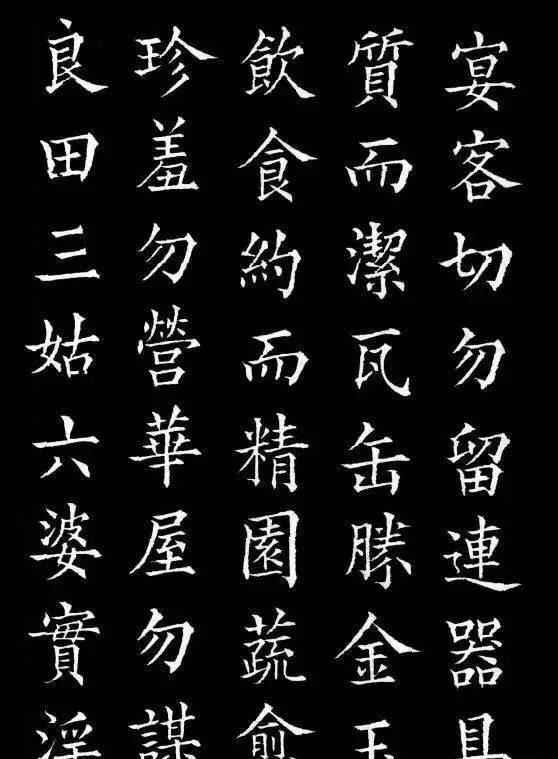 宴客切勿留連器具
質而潔瓦缶勝金玉
飲食約而精園蔬愈
珍羞勿營華屋勿謀
良田三姑六婆實淫